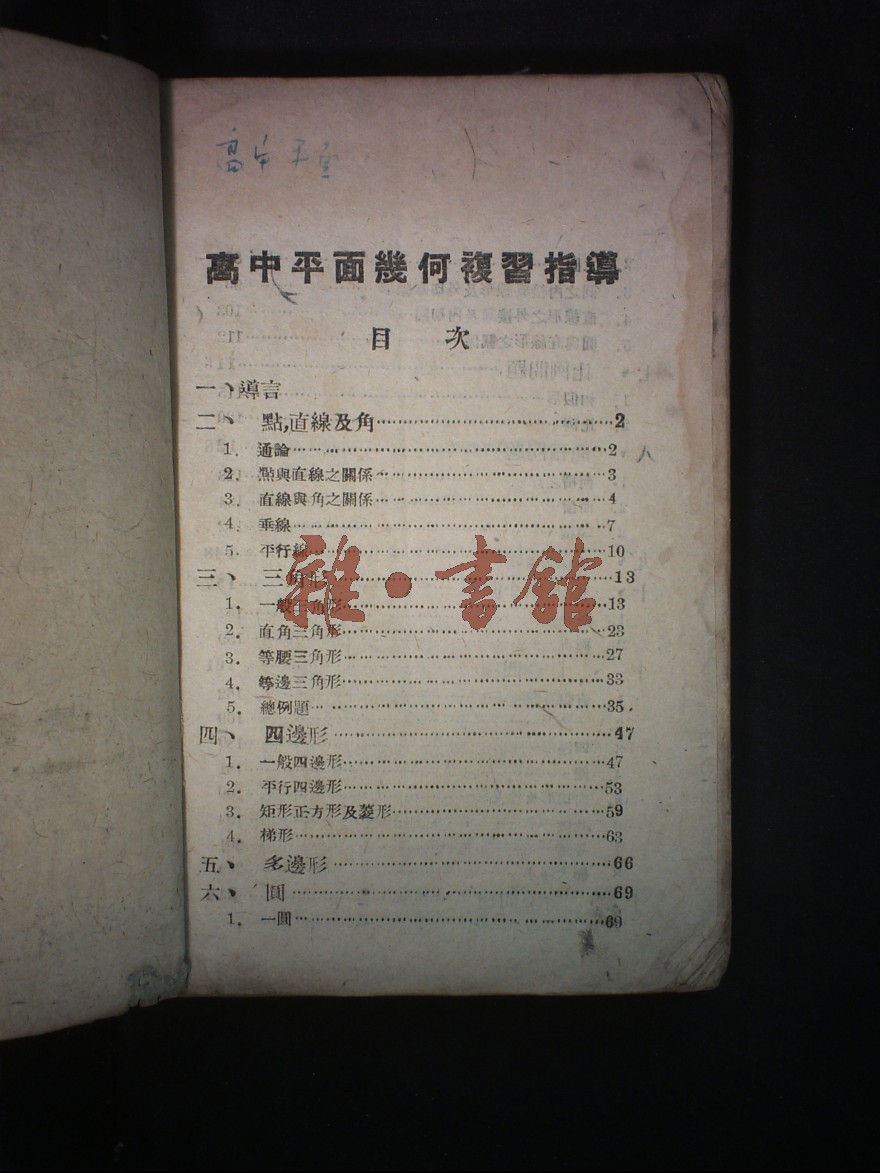 高中平
高中平面幾何複習指導
目 次
一、導言
二、 點,直線及角……2
1. 通論……2
2. 點與直線之關係……3
3. 直線與角之關係……4
4. 垂線……7
5. 平行線……10
三、 三角形……13
1. 一般三角形……13
2. 直角三角形……23
3. 等腰三角形……27
4. 等邊三角形……33
5. 總例題……35
四、 四邊形……47
1. 一般四邊形……47
2. 平行四邊形……53
3. 矩形正方形及菱形……59
4. 梯形……63
五、 多邊形……66
六、 圓……69
1. 一圓……69
雜·書館